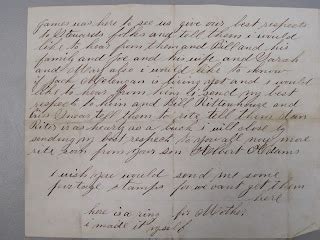 James was here to see us give our best respects
to Edwards folks and tell them i would
like to hear from them and Bill and his
family and Joe and his wife and Sarah
and May also i would like to know
if Jack is being got and i would
like to hear from him to send my best
respects to him and Bill Rittenhouse and
tell them to rite tell them Dan
Rites is as hearty as a buck i will close by
sending my best respect to you all now more
rite soon from your son Albert Adams
i wish you would send me some
postage stamps for we cant get them
here
here is a ring for Mother
i made it myself